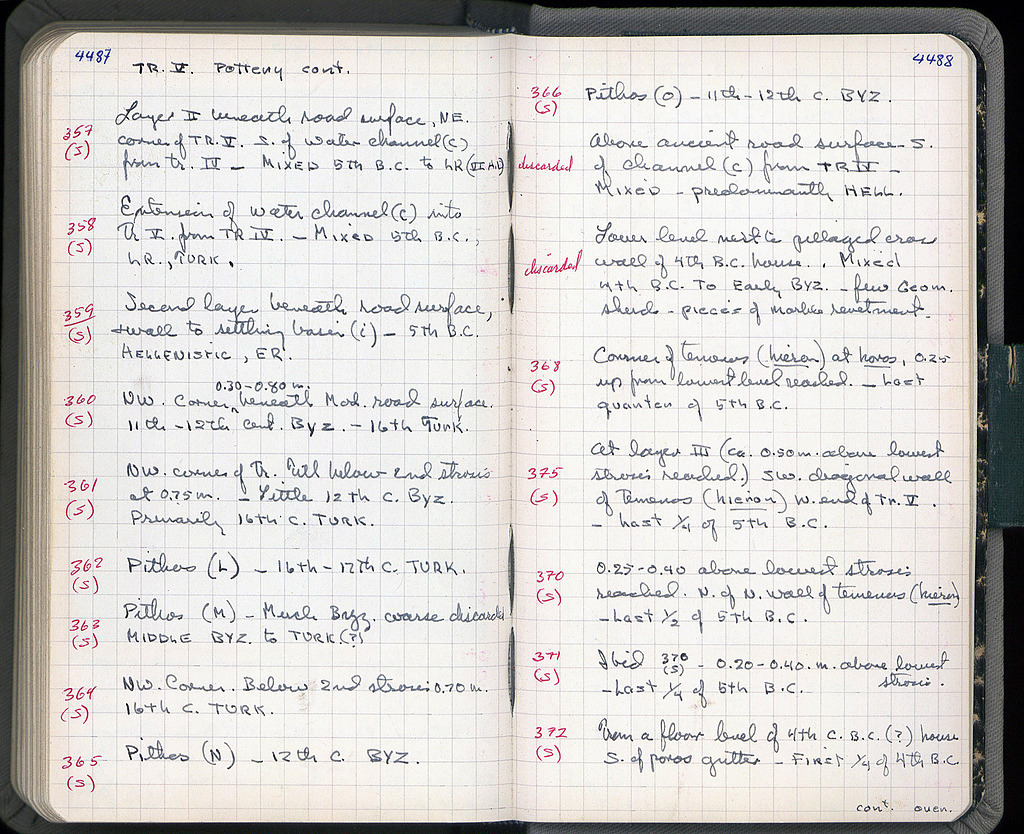 4487
TR. V. Pottery cont.
357 Layer II beneath road surface, NE.
(S) corner of TR. V. S. of water channel (c)
from tr. IV – MIXED 5th B.C. to LR (VI A.D.)
358 Extension of water channel (c) into
(S) Tr V. from TR IV. – MIXED 5th B.C.,
LR., TURK.
359 Second layer beneath road surface,
(S) wall to settling basin (i) – 5th B.C.
HELLENISTIC, ER.
0.30–0.80 m.
360 NW. Corner ^ beneath Mod. road surface.
(S) 11th–12th cent. Byz. – 16th Turk.
361 NW. corner of Tr. Fill below 2nd strosis
(S) at 0.75 m. – Little 12th C. Byz.
Primarily 16th C. TURK.
362 Pithos (L) – 16th–17th C. TURK.
(S)
363 Pithos (M) – Much Byz. coarse discarded
(S) MIDDLE BYZ. to TURK (?)
364 NW. Corner. Below 2nd strosis 0.70 m.
(S) 16th C. TURK.
365 Pithos (N) – 12th C. BYZ.
(S)
4488
366 Pithos (O) – 11th–12th C. BYZ.
(S)
Above ancient road surface – S.
discarded of channel (c) from TR IV –
MIXED – predominantly HELL.
Lower level next to pillaged cross
discarded wall of 4th B.C. house. . Mixed
4th B.C. TO Early BYZ. – few Geom.
sherds – pieces of marble revetment.
368 Corner of temenos (hieron) at horos, 0.25
(S) up from lowest level reached. – Last
quarter of 5th B.C.
At layer III (ca. 0.50 m. above lowest
375 strosis reached.) SW. diagonal wall
(S) of Temenos (hieron) W. end of Tr. V.
– Last 1/4 of 5th B.C.
370 0.25–0.40 above lowest strosis
(S) reached. N. of N. wall of temenos (hieron)
– Last 1/2 of 5th B.C.
371 Ibid 370 (S) – 0.20–0.40. m. above lowest
(S) – Last 1/4 of 5th B.C. strosis.
372 From a floor level of 4th C. B.C. (?) house
(S) S. of poros gutter – First 1/4 of 4th B.C.
cont. over.